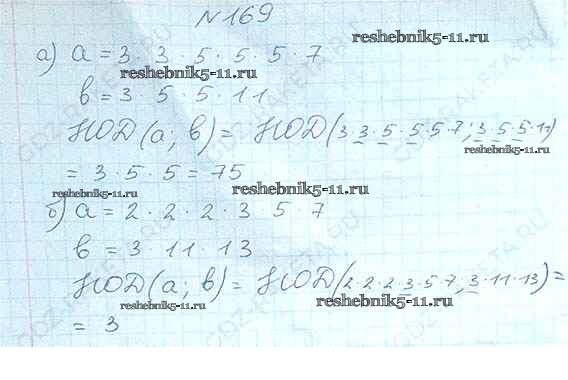 №169
reshebnik5-11.ru
а) a = 3 · 3 · 5 · 5 · 5 · 7
reshebnik5-11.ru
в = 3 · 5 · 5 · 11
НОД(a; в) = НОД(3·3·5·5·5·7; 3·5·5·11)
= 3 · 5 · 5 = 75
reshebnik5-11.ru reshebnik5-11.ru
б) a = 2 · 2 · 2 · 3 5 · 7
в = 3 · 11 · 13
НОД(a; в) = НОД(2·2·2·3·5·7, 3·11·13) =
reshebnik5-11.ru reshebnik5-11.ru
= 3